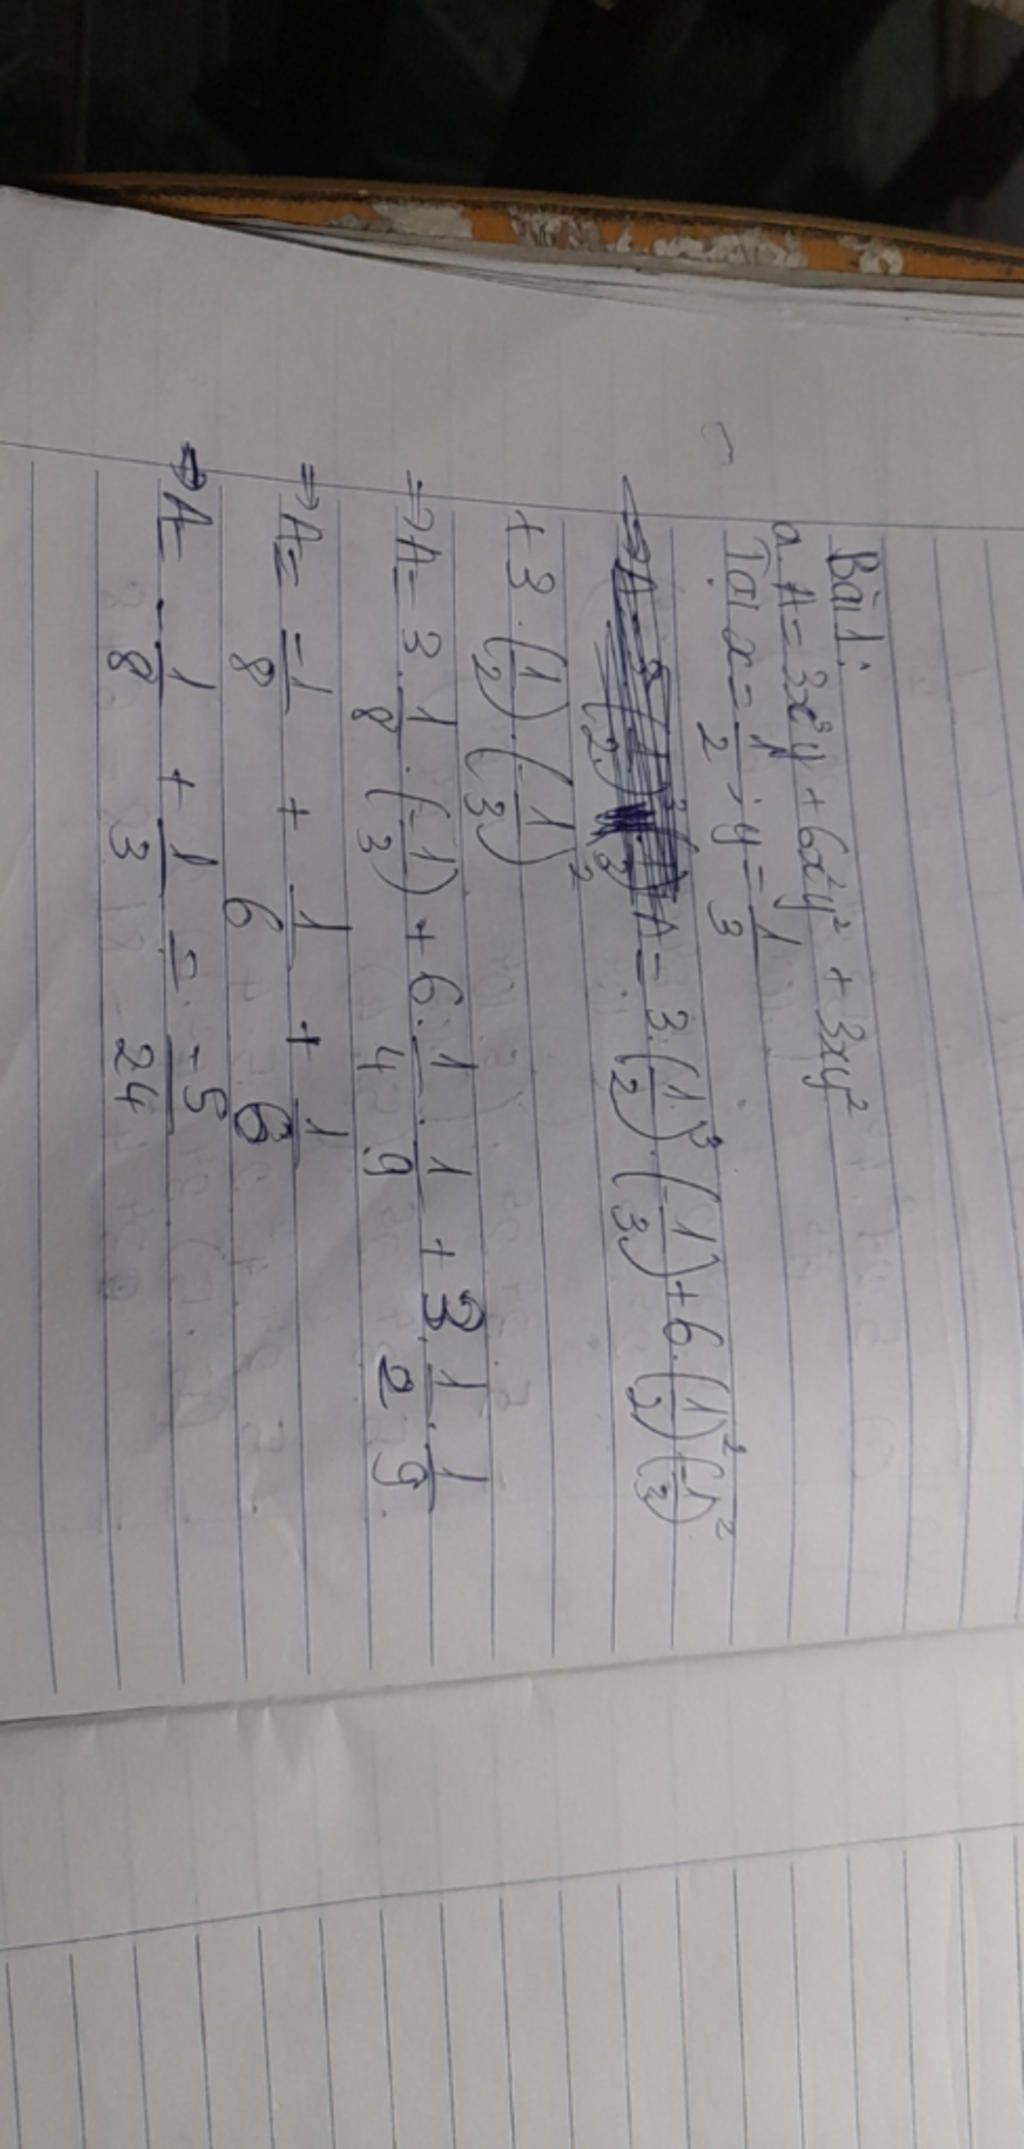 Bài 1:
a. A = 3x³y + 6x²y² + 3xy²
Tại x = 1/2 ; y = -1/3
A = 3.(1/2)³.(-1/3) + 6.(1/2)².(-1/3)²
+ 3.(1/2).(-1/3)²
⇒ A = 3.1/8.(-1/3) + 6.1/4.1/9 + 3.1/2.1/9
⇒ A = -1/8 + 1/6 + 1/6
⇒ A = -1/8 + 1/3 = 5/24